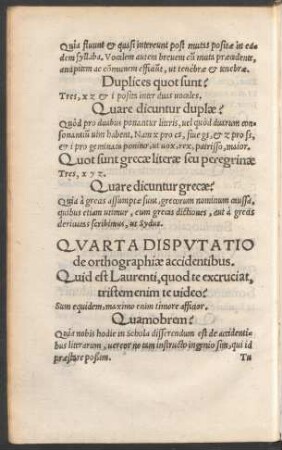 Quia fluunt & quasi intereunt post mutas positæ in ea-
dem syllaba. Vocalem autem brevem cũ muta præcedente,
ancipitem ac cõmunem efficiũt, ut tenebræ & tenebræ.
Duplices quot sunt?
Tres, x z & i positæ inter duas uocales.
Quare dicuntur duplæ?
Quòd pro duabus ponuntur literis, uel quòd duarum con-
sonantiũ uim habent. Nam x pro cs, siue gs, & z pro ſs,
& i pro geminata ponitur, ut uox. rex, patrisso, maior.
Quot sunt grecæ literæ seu peregrinæ
Tres, x y z.
Quare dicuntur grecæ?
Quia à grecis assumptæ sunt, grecorum nominum caussa,
quibus etiam utimur, cum grecas dictiones, aut à grecis
deriuatas scribimus, ut Sydus.
QVARTA DISPVTATIO
de orthographiæ accidentibus.
Quid est Laurenti, quod te excruciat,
tristem enim te uideo?
Sum equidem, maximo enim timore afficior.
Quamobrem?
Quia nobis hodie in Schola disserendum est de accidenti-
bus literarum, uereor ne tam instructo ingenio sim, qui id
præstare possim. Tu